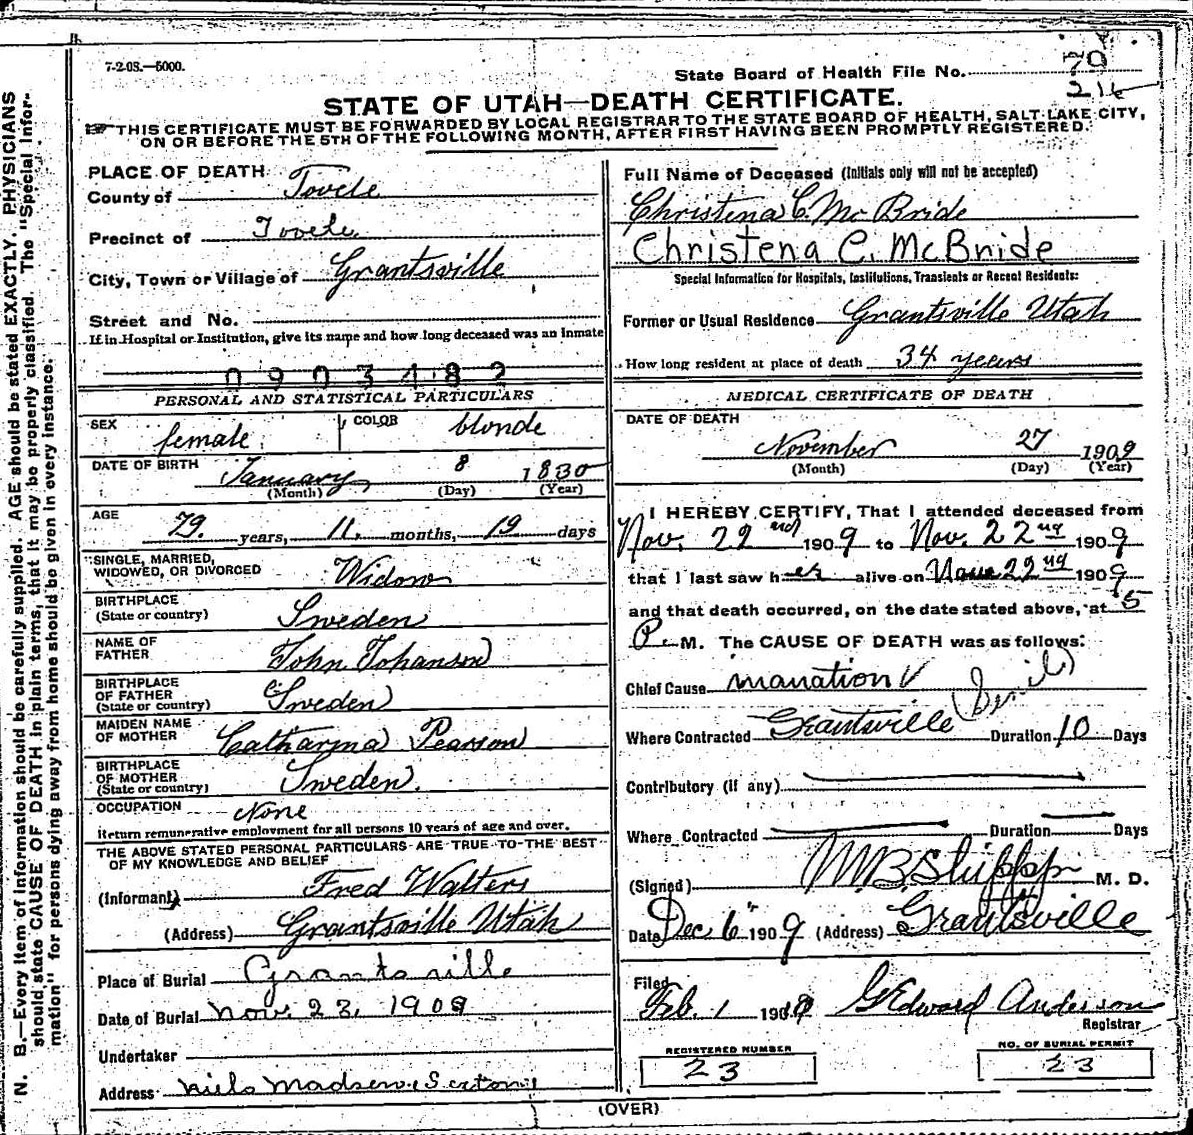 7-2-08.—5000.
State Board of Health File No. 70
216
STATE OF UTAH—DEATH CERTIFICATE.
THIS CERTIFICATE MUST BE FORWARDED BY LOCAL REGISTRAR TO THE STATE BOARD OF HEALTH, SALT LAKE CITY,
ON OR BEFORE THE 5TH OF THE FOLLOWING MONTH, AFTER FIRST HAVING BEEN PROMPTLY REGISTERED.
N. B.—Every item of information should be carefully supplied. AGE should be stated EXACTLY. PHYSICIANS
should state CAUSE OF DEATH in plain terms, that it may be properly classified. The "Special Infor-
mation" for persons dying away from home should be given in every instance.
PLACE OF DEATH
County of Tooele
Precinct of Tooele
City, Town or Village of Grantsville
Street and No.
If in Hospital or Institution, give its name and how long deceased was an inmate
0903482
PERSONAL AND STATISTICAL PARTICULARS
SEX female COLOR blonde
DATE OF BIRTH January 8 1830
(Month) (Day) (Year)
AGE 79 years, 11 months, 19 days
SINGLE, MARRIED,
WIDOWED, OR DIVORCED Widow
BIRTHPLACE
(State or country) Sweden
NAME OF
FATHER John Johanson
BIRTHPLACE
OF FATHER
(State or country) Sweden
MAIDEN NAME
OF MOTHER Catharina Pearson
BIRTHPLACE
OF MOTHER
(State or country) Sweden.
OCCUPATION None
Return remunerative employment for all persons 10 years of age and over.
THE ABOVE STATED PERSONAL PARTICULARS ARE TRUE TO THE BEST
OF MY KNOWLEDGE AND BELIEF
(Informant) Fred Walters
(Address) Grantsville Utah
Place of Burial Grantsville
Date of Burial Nov. 23, 1909
Undertaker
Address Niels Madsen, Sexton
Full Name of Deceased (Initials only will not be accepted)
Christena C. McBride
Christena C. McBride
Special Information for Hospitals, Institutions, Transients or Recent Residents:
Former or Usual Residence Grantsville Utah
How long resident at place of death 34 years
MEDICAL CERTIFICATE OF DEATH
DATE OF DEATH
November 27 1909
(Month) (Day) (Year)
I HEREBY CERTIFY, That I attended deceased from
Nov. 22 nd 1909 to Nov. 22 nd 1909
that I last saw her alive on Nov 22 nd 1909
and that death occurred, on the date stated above, at 5
P. M. The CAUSE OF DEATH was as follows:
Chief Cause inanation (Senile)
Where Contracted Grantsville Duration 10 Days
Contributory (if any)
Where Contracted Duration Days
(Signed) M. D.
Date Dec 6" 1909 (Address) Grantsville
Filed
Feb. 1 19 G Edward Anderson
Registrar
REGISTERED NUMBER
23
NO. OF BURIAL PERMIT
23
(OVER)